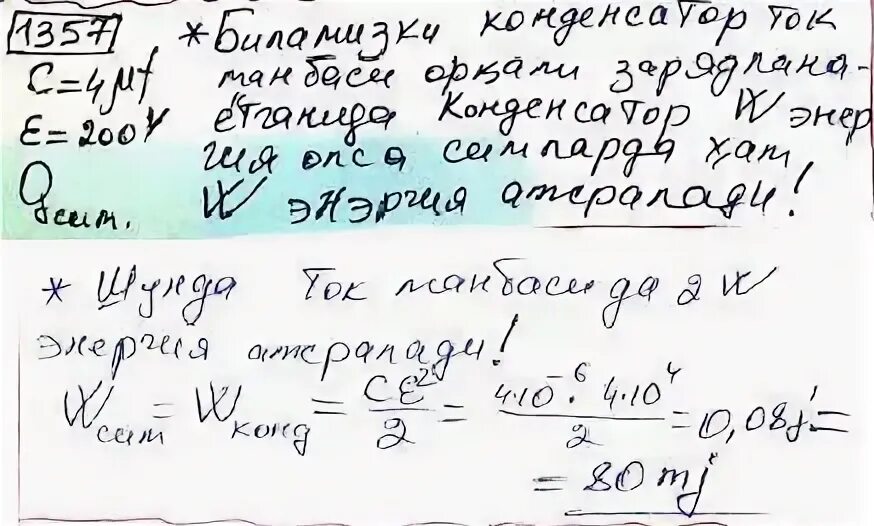 1357 * Биламизки конденсатор ток
C=4μf манбаси орқали зарядлана-
ε=200V ётганида конденсатор W энер
гия олса симларда ҳам
Qсим. W энэргия ажралади!
* Шунда ток манбасида 2W
энергия ажралади!
Wсим = Wконд = Cε²/2 = 4·10⁻⁶·4·10⁴/2 = 0,08j =
= 80 mj